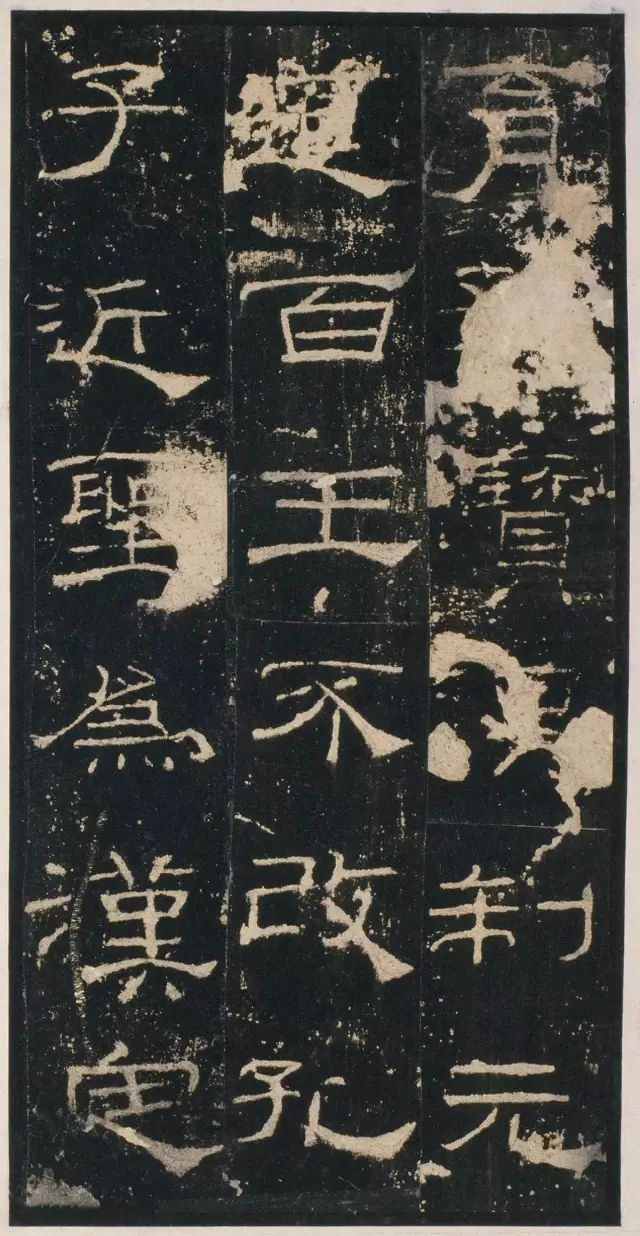 育寶制元
道百王不改孔
子近聖為漢定